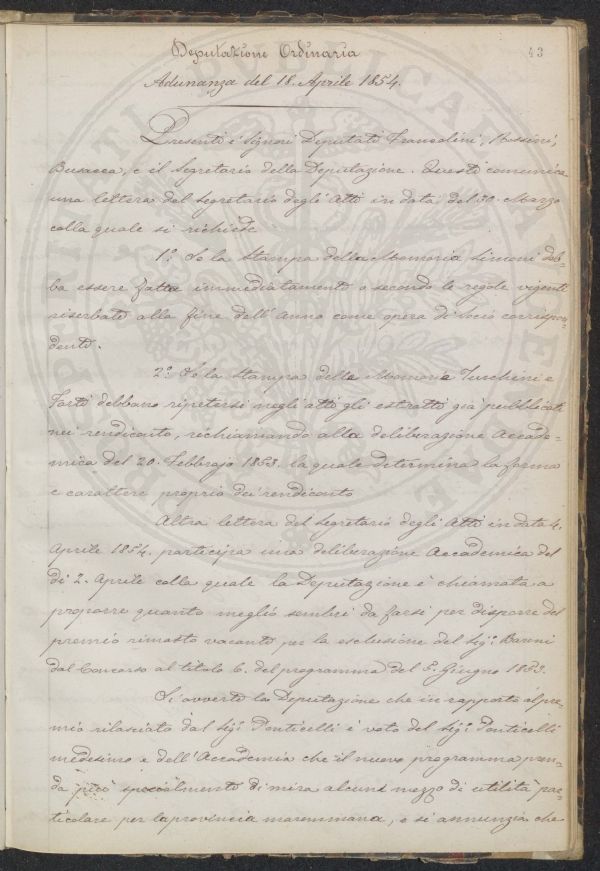 43
Deputazione Ordinaria
Adunanza del 18. Aprile 1854.
Presenti i Signori Deputati Francolini, Rossini,
Busacca, e il Segretario della Deputazione. Questi comunica
una lettera del Segretario degli Atti in data del 30. Marzo
colla quale si richiede
1.° Se la Stampa della Memoria Simoni deb=
ba essere fatta immediatamente o secondo le regole vigenti
riserbata alla fine dell'anno come opera di Socio corrispon=
dente.
2.° Se la Stampa della Memoria Tuschini e
Forti debbano ripetersi negli atti gli estratti già pubblicati
nei rendiconto, richiamando alla deliberazione Accade=
mica del 20. Febbrajo 1853. la quale determina la forma
e carattere proprio dei rendiconto
Altra lettera del Segretario degli Atti in data 4.
Aprile 1854. partecipa una deliberazione Accademica del
dì 2. Aprile colla quale la Deputazione è chiamata a
proporre quanto meglio sembri da farsi per disporre del
premio rimasto vacante per la esclusione del Sig.r Baroni
dal Concorso al titolo 6. del programma del 5. Giugno 1853.
Si avverte la Deputazione che in rapporto al pre=
mio rilasciato dal Sig.r Ponticelli è voto del Sig.r Ponticelli
medesimo e dell'Accademia che il nuovo programma pren=
da più specialmente di mira alcuni mezzo di utilità par=
ticolare per la provincia maremmana, e si annunzia che